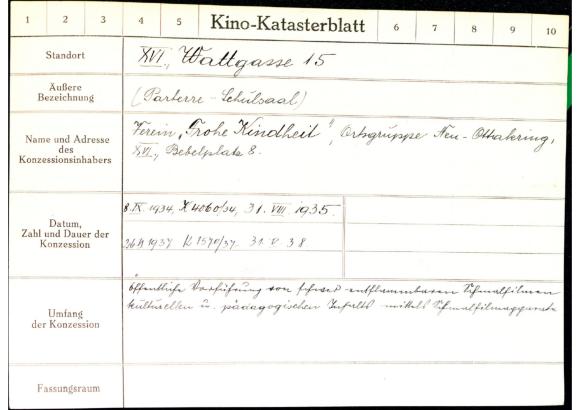 1 2 3 4 5 Kino-Katasterblatt 6 7 8 9 10
Standort XVI., Wattgasse 15
Äußere
Bezeichnung (Parterre - Schulsaal)
Name und Adresse
des
Konzessionsinhabers
Verein „Frohe Kindheit“, Ortsgruppe Neu-Ottakring,
XVI., Bebelplatz 8.
Datum,
Zahl und Dauer der
Konzession
8. IX. 1934, X 4060/34, 31. VIII. 1935.
1937 K 1570/37. 31. V. 38
Umfang
der Konzession
öffentliche Vorführung von schwer-entflammbaren Schmalfilmen
kulturellen u. pädagogischen Inhalts mittels Schmalfilmapparate
Fassungsraum